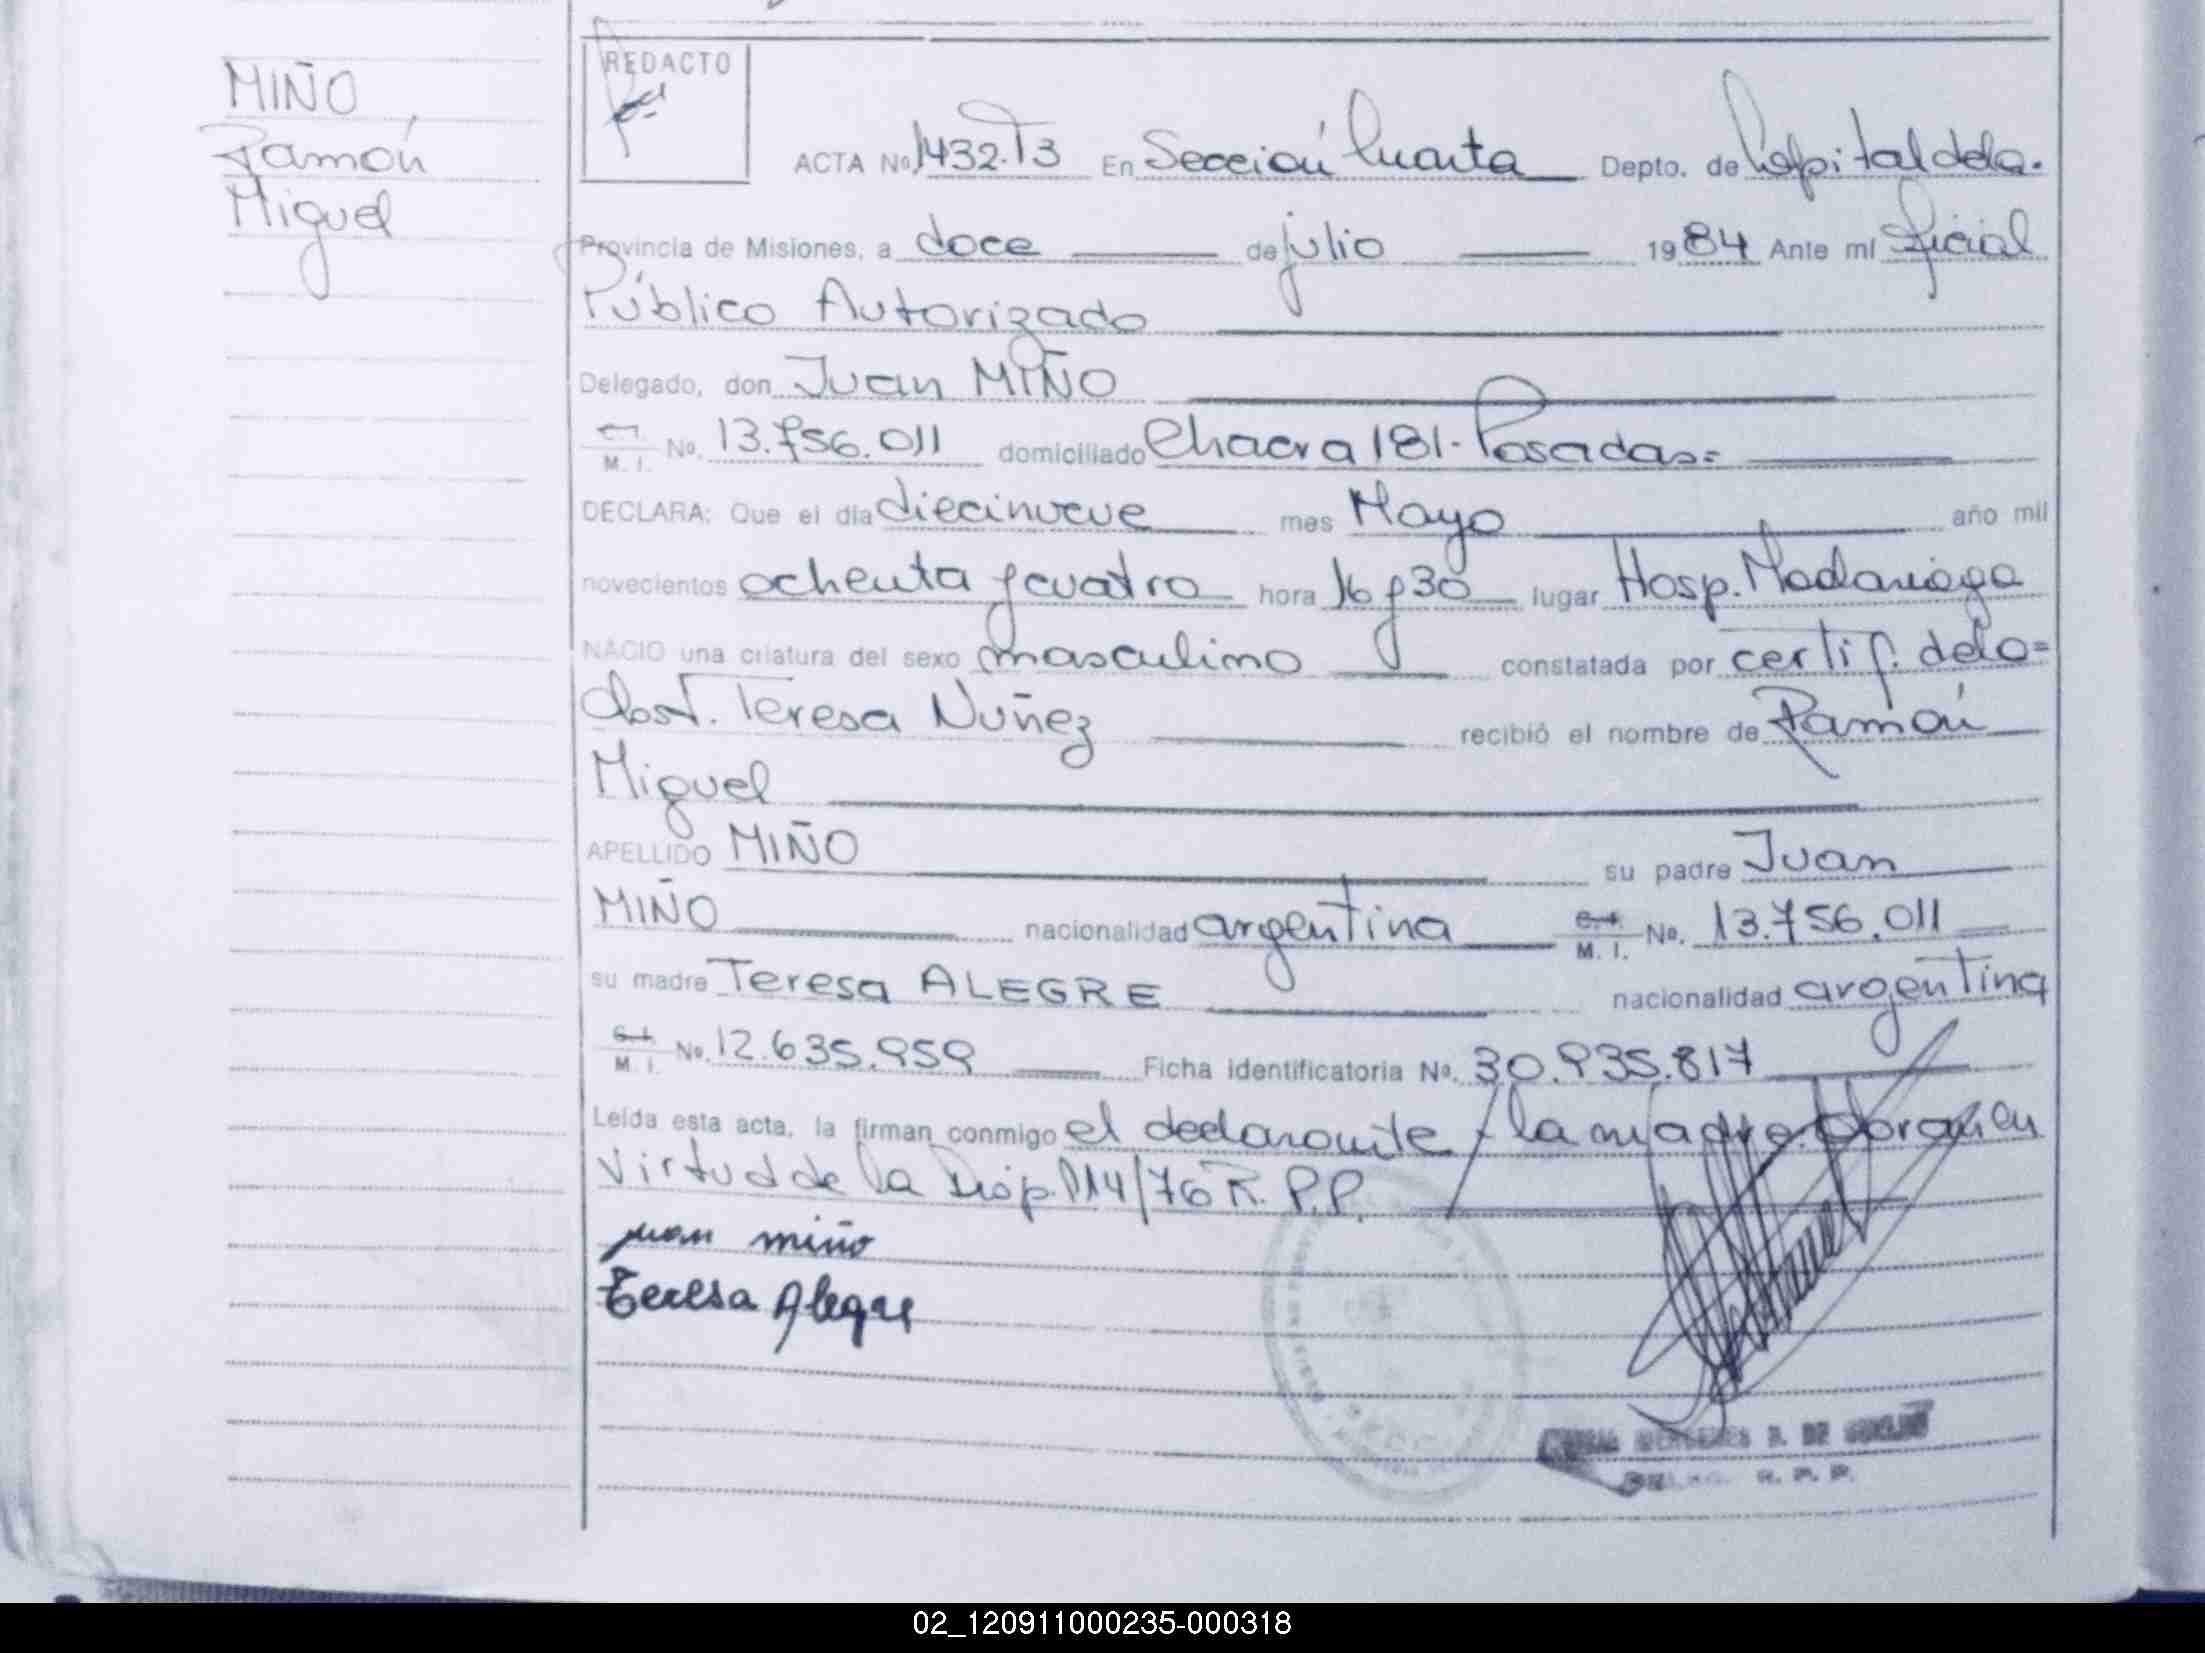 MIÑO
Ramón
Miguel
REDACTO
ACTA Nº 1432.T3 En Sección Cuarta Depto. de Capital dela.
Provincia de Misiones, a doce de julio 1984 Ante mí Oficial
Público Autorizado
Delegado, don Juan MIÑO
M. I. No. 13.756.011 domiciliado Chacra 181. Posadas=
DECLARA: Que el día diecinueve mes Mayo año mil
novecientos ochenta y cuatro hora 16 y 30 lugar Hosp. Madariaga
NACIO una criatura del sexo masculino constatada por certif. dela=
Obst. Teresa Nuñez recibió el nombre de Ramón
Miguel
APELLIDO MIÑO su padre Juan
MIÑO nacionalidad argentina M. I. No. 13.756.011
su madre Teresa ALEGRE nacionalidad argentina
M. I. No. 12.635.959 Ficha identificatoria No. 30.935.817
Leída esta acta, la firman conmigo el declarante y la madre. Obran en
virtud de la Disp. 114/76 R. P.P.
juan miño
teresa Alegre
R. P. P.
02_120911000235-000318